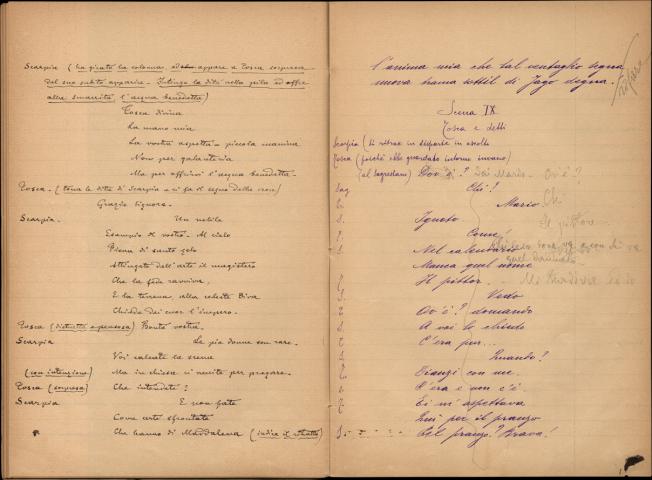 Scarpia (ha girato la colonna, ed appare a Tosca sorpresa
del suo subito apparire. Intinge le dita nella pila ed offre
alla smarrita l'acqua benedetta)
Tosca divina
La mano mia
La vostra aspetta - piccola manina
Non per galanteria
Ma per offrirvi l'acqua benedetta -
Tosca - (tocca le dita di Scarpia e si fa il segno della croce)
Grazie signore -
Scarpia - Un nobile
Esempio è il vostro - Al cielo
Piena di santo zelo
Attingete dell'arte il magistero
Che la fede ravviva,
E la terrena, alla celeste Diva
Tosca (distratta e pensosa) Bontà vostra -
Scarpia Le pie donne son rare -
Voi calcate la scena
(con intenzione) Ma in chiesa ci venite per pregare -
Tosca (sorpresa) Che intendete?
Scarpia E non fate
Come certe sfrontate
Che hanno di Maddalena (indica il ritratto)
l'anima mia che tal ventaglio segna
nuova trama sottil di Jago degna -
Scena IX
Tosca e detti
Scarpia (si ritrae in disparte in ascolto
Tosca (poichè ella guardato intorno invano)
(al Sagrestano) Dov'è? Dov'è?
Sag Chi?
Mario -
S. Ignoto
Come!
S. Nel calendario
Manca quel nome
Il pittor -
Vedo
Ov'è? domando
S. A voi lo chiedo
C'era pur...
Quando?
Dianzi con me -
C'era e non c'è -
Ei m'aspettava
Qui per il pranzo
S. Pel pranzo? Brava!